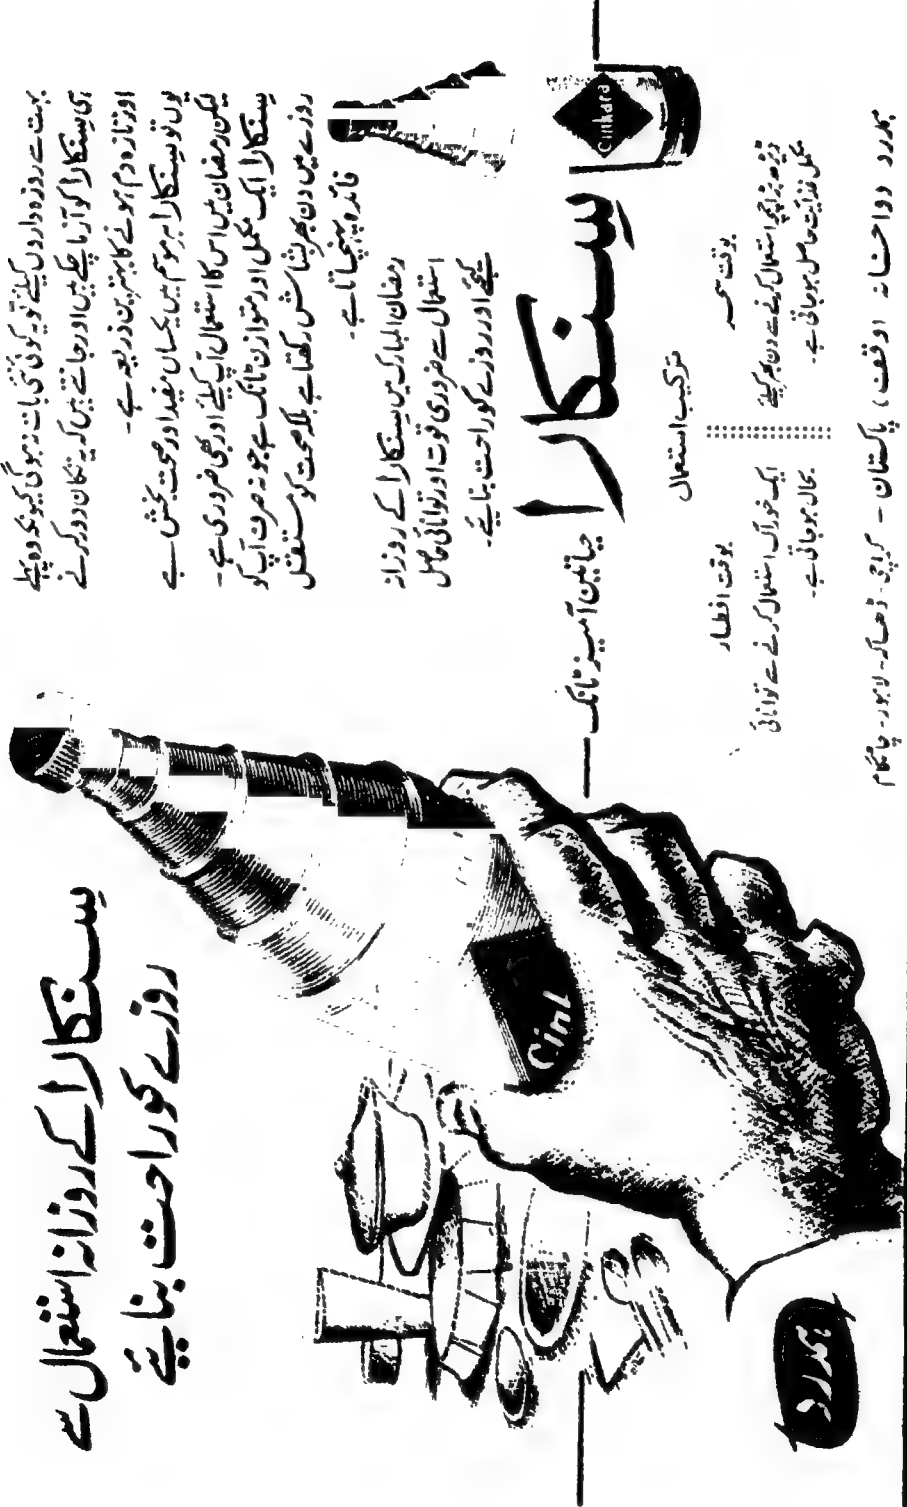 سنکارا کے روزانہ استعمال سے
روزے کو راحت بنایئے
بہت سے روزہ داروں کیلئے تو یہ کوئی نئی بات نہ ہوگی کیونکہ وہ پہلے
ہی سنکارا کو آزما چکے ہیں اور جانتے ہیں کہ یہ تکان دور کرنے
اور تازہ دم ہونے کا بہترین ذریعہ ہے۔
یوں تو سنکارا ہر موسم میں یکساں مفید اور صحت بخش ہے
لیکن رمضان میں اس کا استعمال آپ کیلئے اور بھی ضروری ہے۔
سنکارا ایک مکمل اور متوازن ٹانک ہے جو نہ صرف آپ کو
روزے میں دن بھر بشاش رکھتا ہے بلکہ صحت کو مستقل
فائدہ پہنچاتا ہے۔
رمضان المبارک میں سنکارا کے روزانہ
استعمال سے ضروری قوت اور توانائی حاصل
کیجئے اور روزے کو راحت بنایئے۔
سنکارا
Cinkara
حیاتین آمیز ٹانک
ترکیب استعمال
بوقت سحر
ڈیڑھ بڑا چمچہ استعمال کرنے سے دن بھر کیلئے
مکمل غذائیت حاصل ہوجاتی ہے۔
بوقت افطار
ایک خوراک استعمال کرنے سے توانائی
بحال ہوجاتی ہے۔
Cink
ہمدرد
ہمدرد دواخانہ (وقف) پاکستان - کراچی - ڈھاکہ - لاہور - چاٹگام